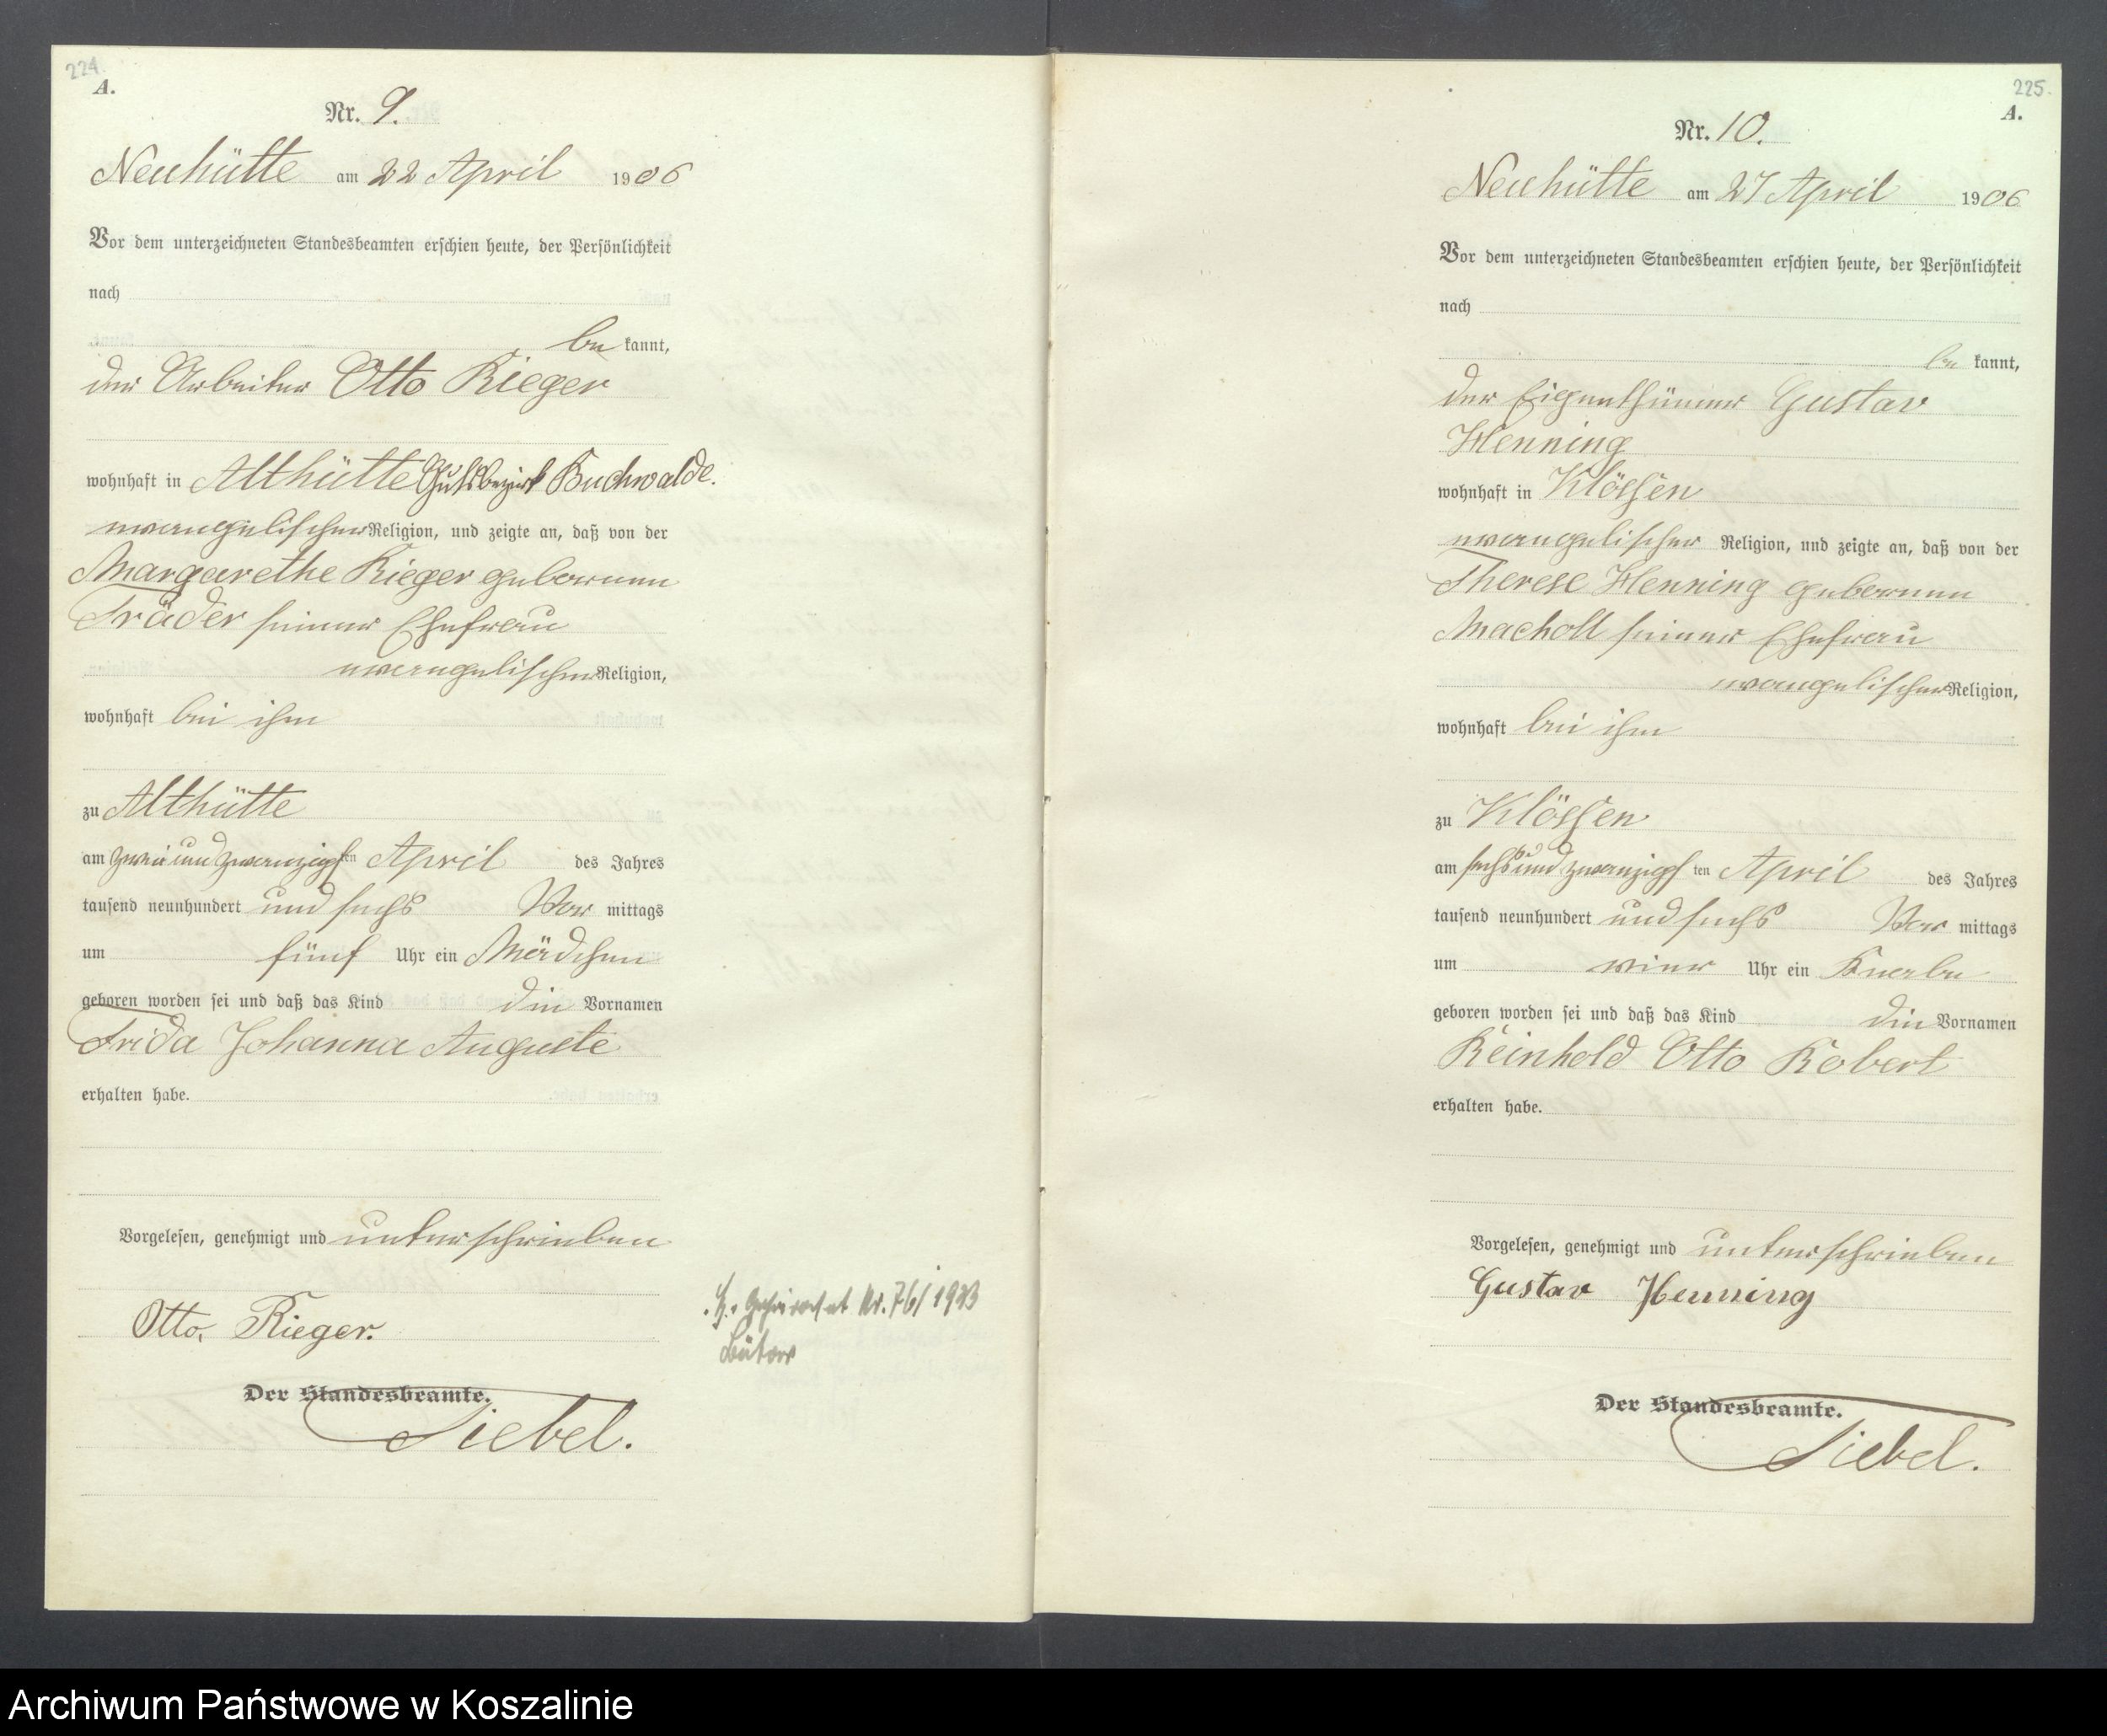 224.
A.
Nr. 9.
Neuhütte am 22 April 1906
Vor dem unterzeichneten Standesbeamten erschien heute, der Persönlichkeit
nach
be kannt,
der Arbeiter Otto Rieger
wohnhaft in Althütte Gutsbezirk Buchwalde.
evangelischer Religion, und zeigte an, daß von der
Margarethe Rieger geborenen
Träder seiner Ehefrau
evangelischer Religion,
wohnhaft bei ihm
zu Althütte
am zwei und zwanzigsten April des Jahres
tausend neunhundert und sechs Vor mittags
um fünf Uhr ein Mädchen
geboren worden sei und daß das Kind die Vornamen
Frida Johanna Auguste
erhalten habe.
Vorgelesen, genehmigt und unterschrieben
Otto Rieger.
Der Standesbeamte.
Siebel.
Geheiratet Nr. 76/1923
Bütow
225.
A.
Nr. 10.
Neuhütte am 27 April 1906
Vor dem unterzeichneten Standesbeamten erschien heute, der Persönlichkeit
nach
be kannt,
der Eigenthümer Gustav
Henning
wohnhaft in Klössen
evangelischer Religion, und zeigte an, daß von der
Therese Henning geborenen
Macholl seiner Ehefrau
evangelischer Religion,
wohnhaft bei ihm
zu Klössen
am sechs und zwanzigsten April des Jahres
tausend neunhundert und sechs Vor mittags
um vier Uhr ein Knabe
geboren worden sei und daß das Kind die Vornamen
Reinhold Otto Robert
erhalten habe.
Vorgelesen, genehmigt und unterschrieben
Gustav Henning
Der Standesbeamte.
Siebel.
Archiwum Państwowe w Koszalinie